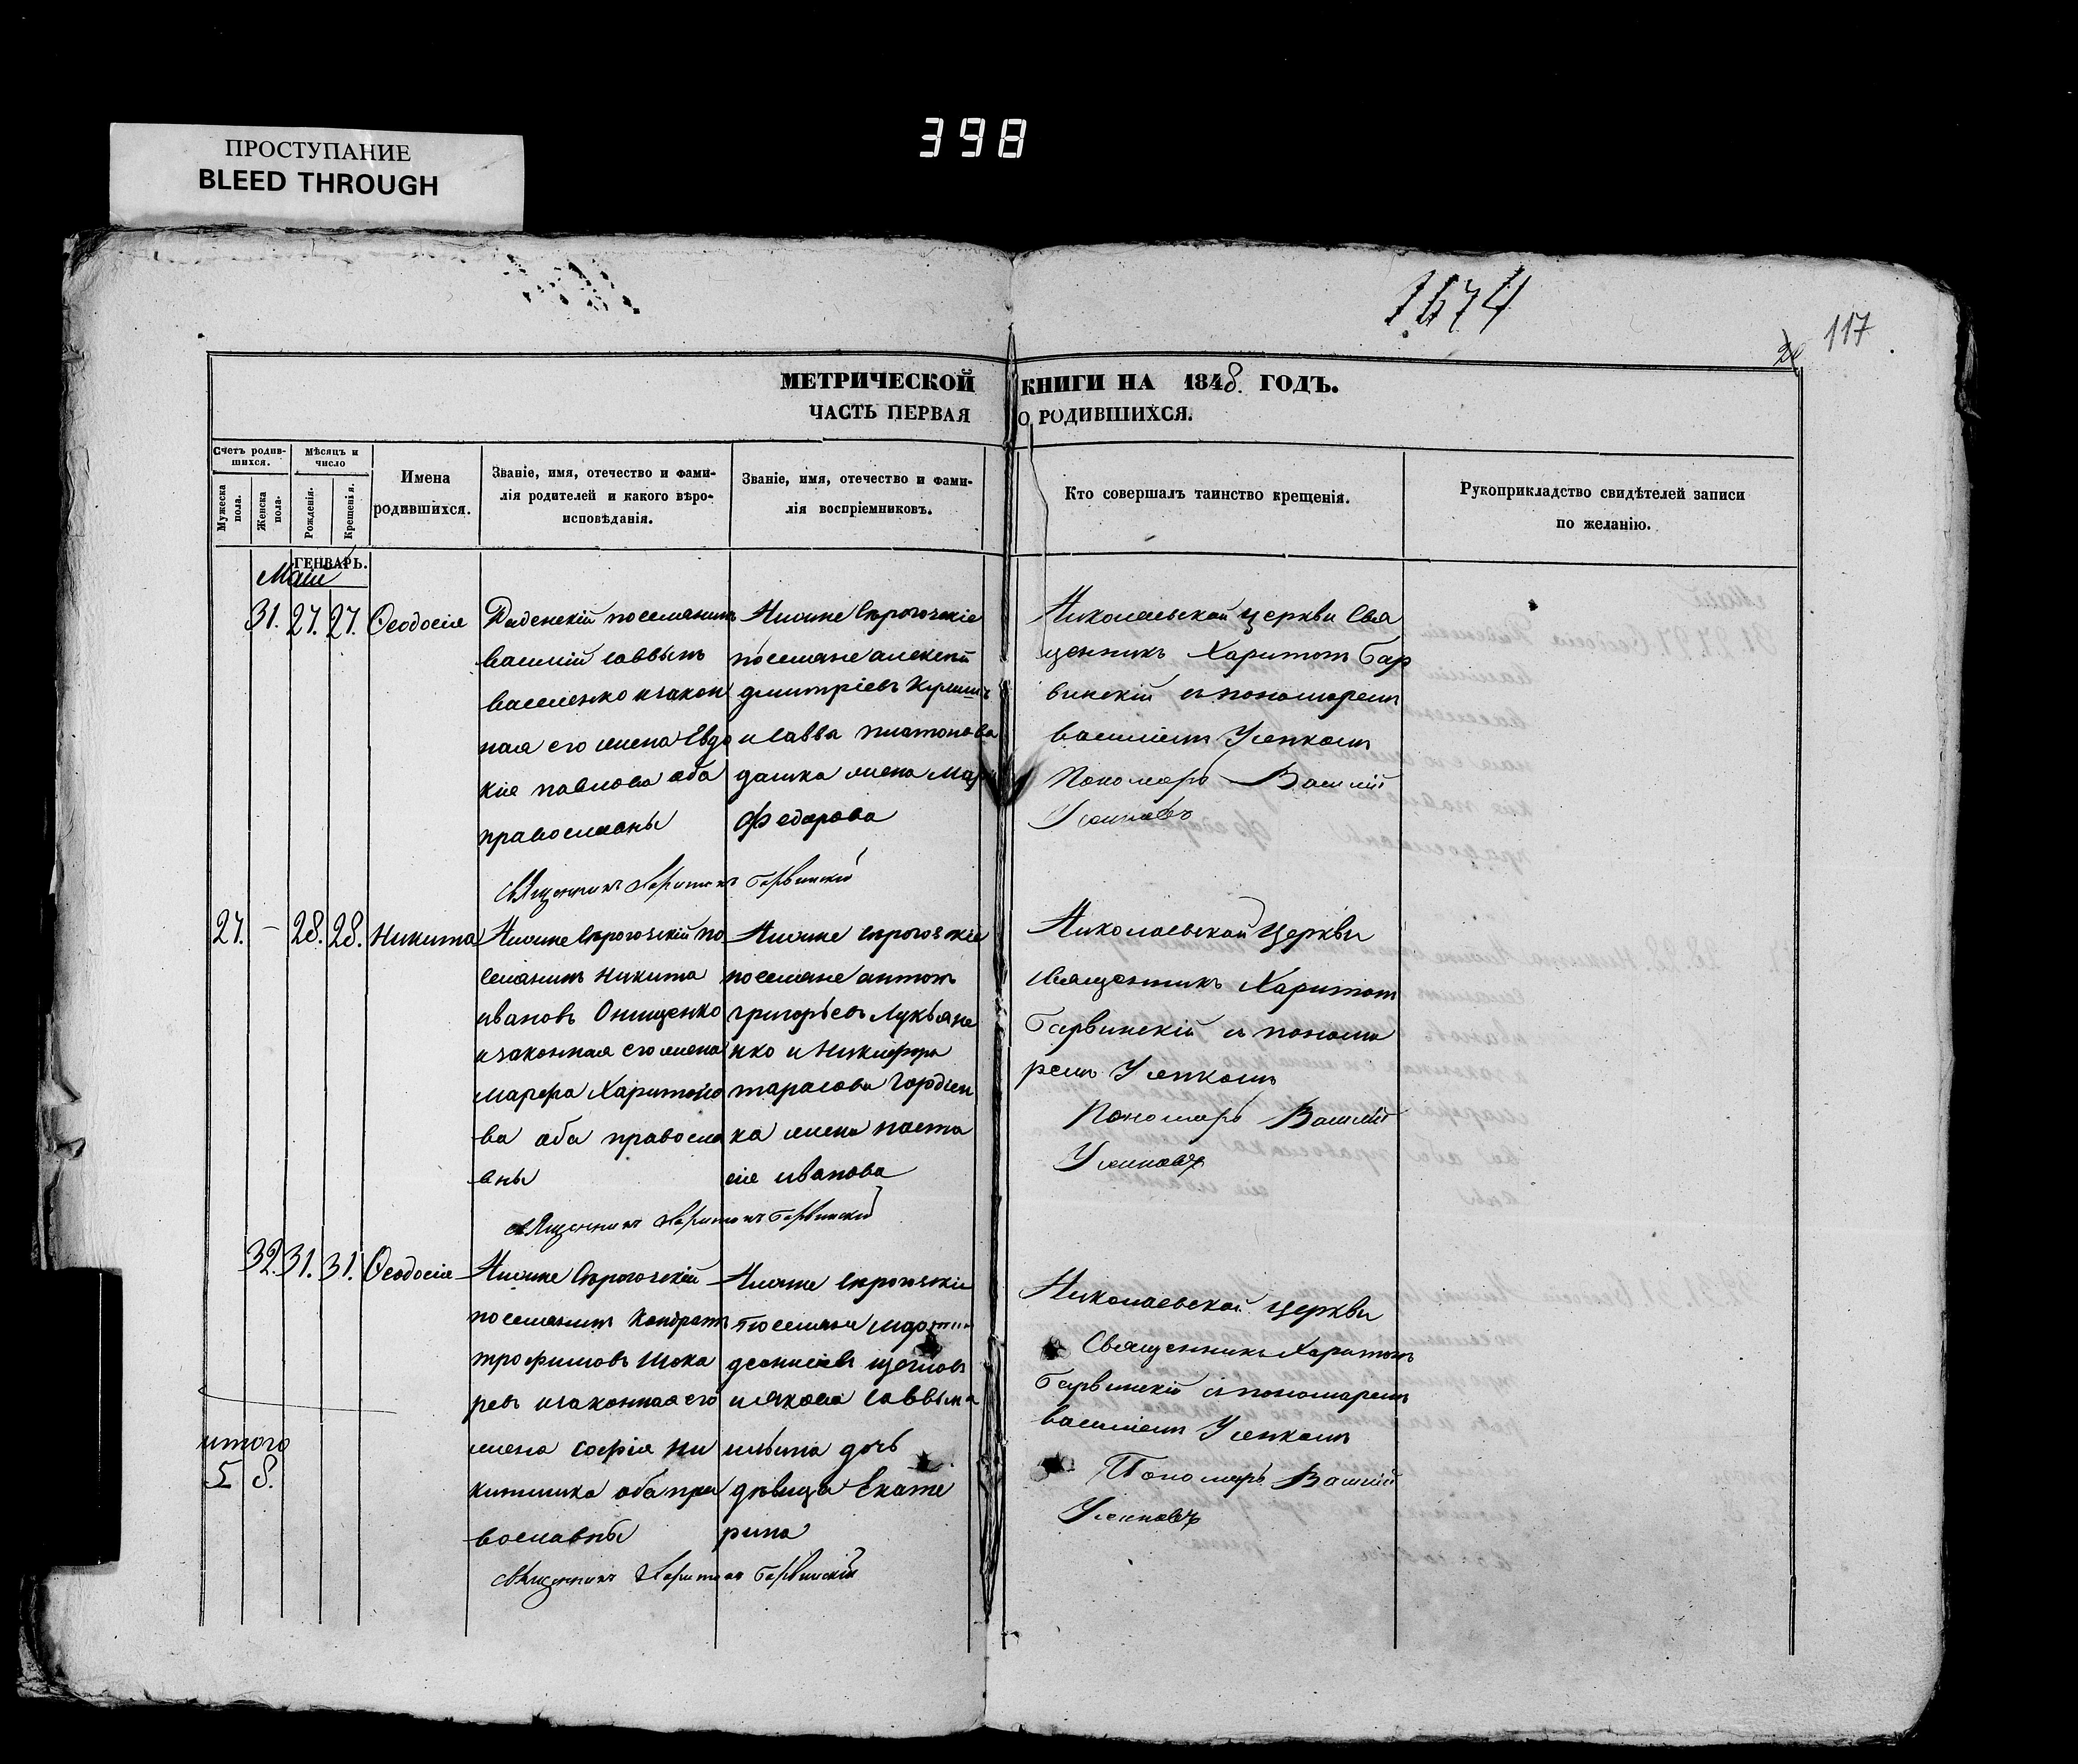 398
ПРОСТУПАНИЕ
BLEED THROUGH
1674
20
117
МЕТРИЧЕСКОЙ КНИГИ НА 1848. ГОДЪ.
ЧАСТЬ ПЕРВАЯ О РОДИВШИХСЯ.
Счетъ родив-
шихся.
Мужеска пола.
Женска пола.
Мѣсяцъ и
число
Рожденія.
Крещенія.
Имена
родившихся.
Званіе, имя, отечество и фами-
лія родителей и какого вѣро-
исповѣданія.
Званіе, имя, отечество и фами-
лія воспріемниковъ.
Кто совершалъ таинство крещенія.
Рукоприкладство свидѣтелей записи
по желанію.
ГЕНВАРЬ.
Маій
31. 27. 27. Ѳеодосія
поселянинъ
василій саввинъ
василенко изакон
ная его жена Евдо
кія павлова оба
православны
Нижне Сѣрогозскіе
поселяне алексѣй
дмитріевъ
и савва платонова
дашка жена
Федорова
Николаевской церкви Свя
щенникъ Харитонъ Бар
винскій съ пономаремъ
василіемъ
Пономарь Василій
Священникъ Харитонъ Барвинскій
27. – 28. 28. Никита
Нижне Сѣрогозскій по
селянинъ Никита
ивановъ Онищенко
изаконная его жена
марфа Харитоно
ва оба правосла
вны
Нижне Сѣрогозскіе
поселяне антонъ
григорьевъ Лукьяне
нко и Никифора
тарасова Гордіен
ка жена наста
сія иванова
Николаевской Церкви
священникъ Харитонъ
Барвинскій съ понома
ремъ
Пономарь Василій
Священникъ Харитонъ Барвинскій
32. 31. 31. Ѳеодосія
Нижне Сѣрогозскій
поселянинъ Кондратъ
трофимовъ Шока
ревъ изаконная его
жена софія Ни
китишка оба пра
вославны
Нижне Сѣрогозскіе
Поселяне
и якова саввина
дочь
дѣвица Екате
рина
Николаевской Церкви
Священникъ Харитонъ
Барвинскій съ пономаремъ
василіемъ
Пономарь Василій
Священникъ Харитонъ Барвинскій
итого
5 8.